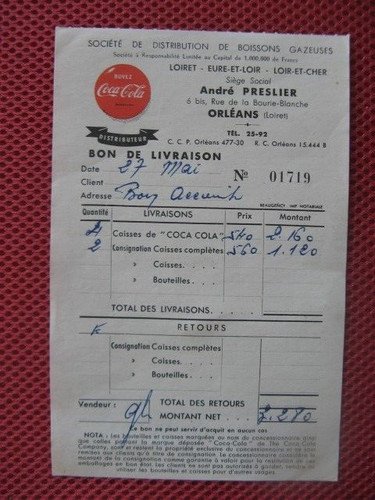 SOCIÉTÉ DE DISTRIBUTION DE BOISSONS GAZEUSES
Société à Responsabilité Limitée au Capital de 1.000.000 de Francs
LOIRET - EURE-ET-LOIR - LOIR-ET-CHER
Siège Social
BUVEZ
Coca-Cola
André PRESLIER
6 bis, Rue de la Bourie-Blanche
ORLÉANS (Loiret)
DISTRIBUTEUR
TÉL. 25-92
C. C. P. Orléans 477-30 R. C. Orléans 15.444 B
BON DE LIVRAISON
Date 27 Mai
Client
No 01719
Adresse Bon
BEAUGENCY - IMP. NOTARIALE
Quantité LIVRAISONS Prix Montant
4 Caisses de "COCA COLA" 540 2.160
2 Consignation Caisses complètes 560 1.120
» Caisses. . . .
» Bouteilles. . . .
TOTAL DES LIVRAISONS. . . .
RETOURS
Consignation Caisses complètes
» Caisses. . . .
» Bouteilles. . . .
TOTAL DES RETOURS
Vendeur : MONTANT NET . . . 3.280
Ce bon ne peut servir d'acquit en aucun cas
NOTA : Les bouteilles et caisses marquées au nom du concessionnaire ainsi
que celles portant la marque déposée "Coca-Cola" de The Coca-Cola
Company, sont et restent la propriété exclusive du concessionnaire et ne sont
remises aux clients qu'à titre de consignation. Le concessionnaire conserve le
montant de la consignation comme garantie à valoir pour la restitution de ses
emballages en bon état. Les caisses ne sont pas autorisées à garder, vendre
ou utiliser bouteilles et caisses pour d'autres usages.